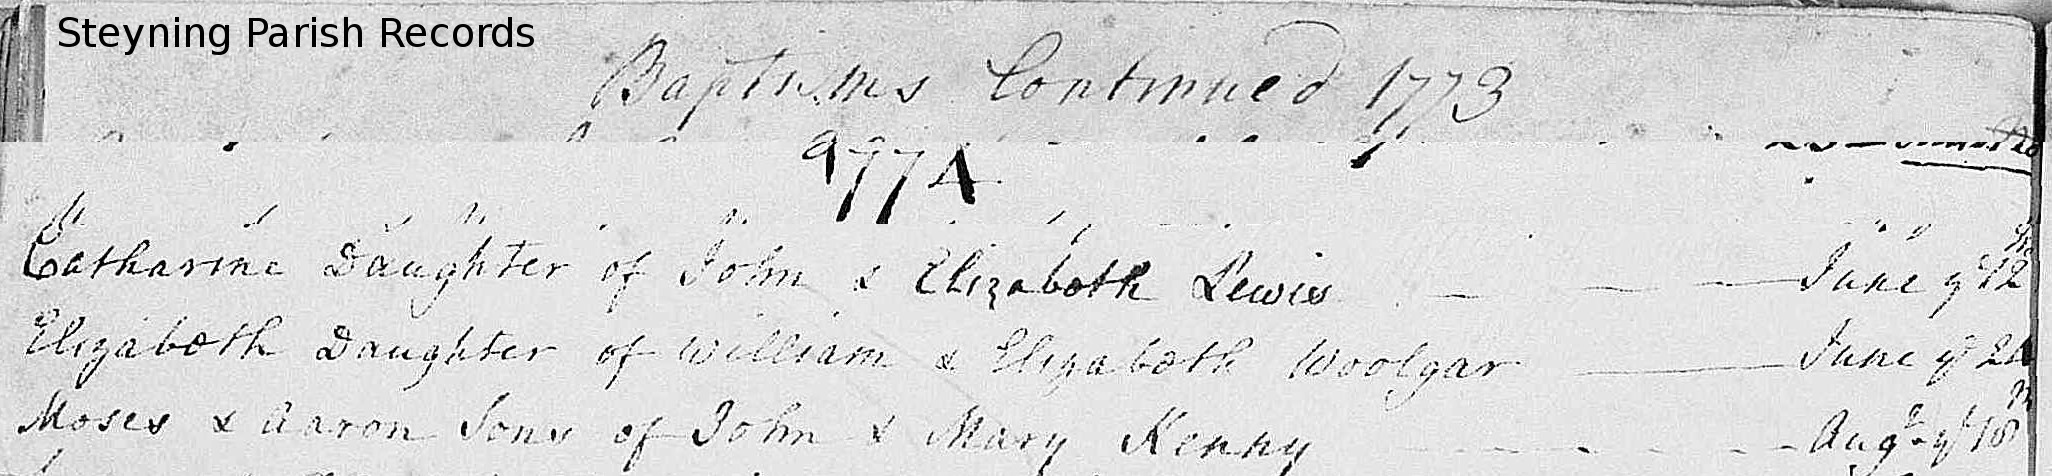 Steyning Parish Records
Baptisms Continued 1773
1774
Catharine Daughter of John & Elizabeth Lewis June ye 12th
Elizabeth Daughter of William & Elizabeth Woolgar June ye 24
Moses & Aaron Sons of John & Mary Kenny Augst ye 18th